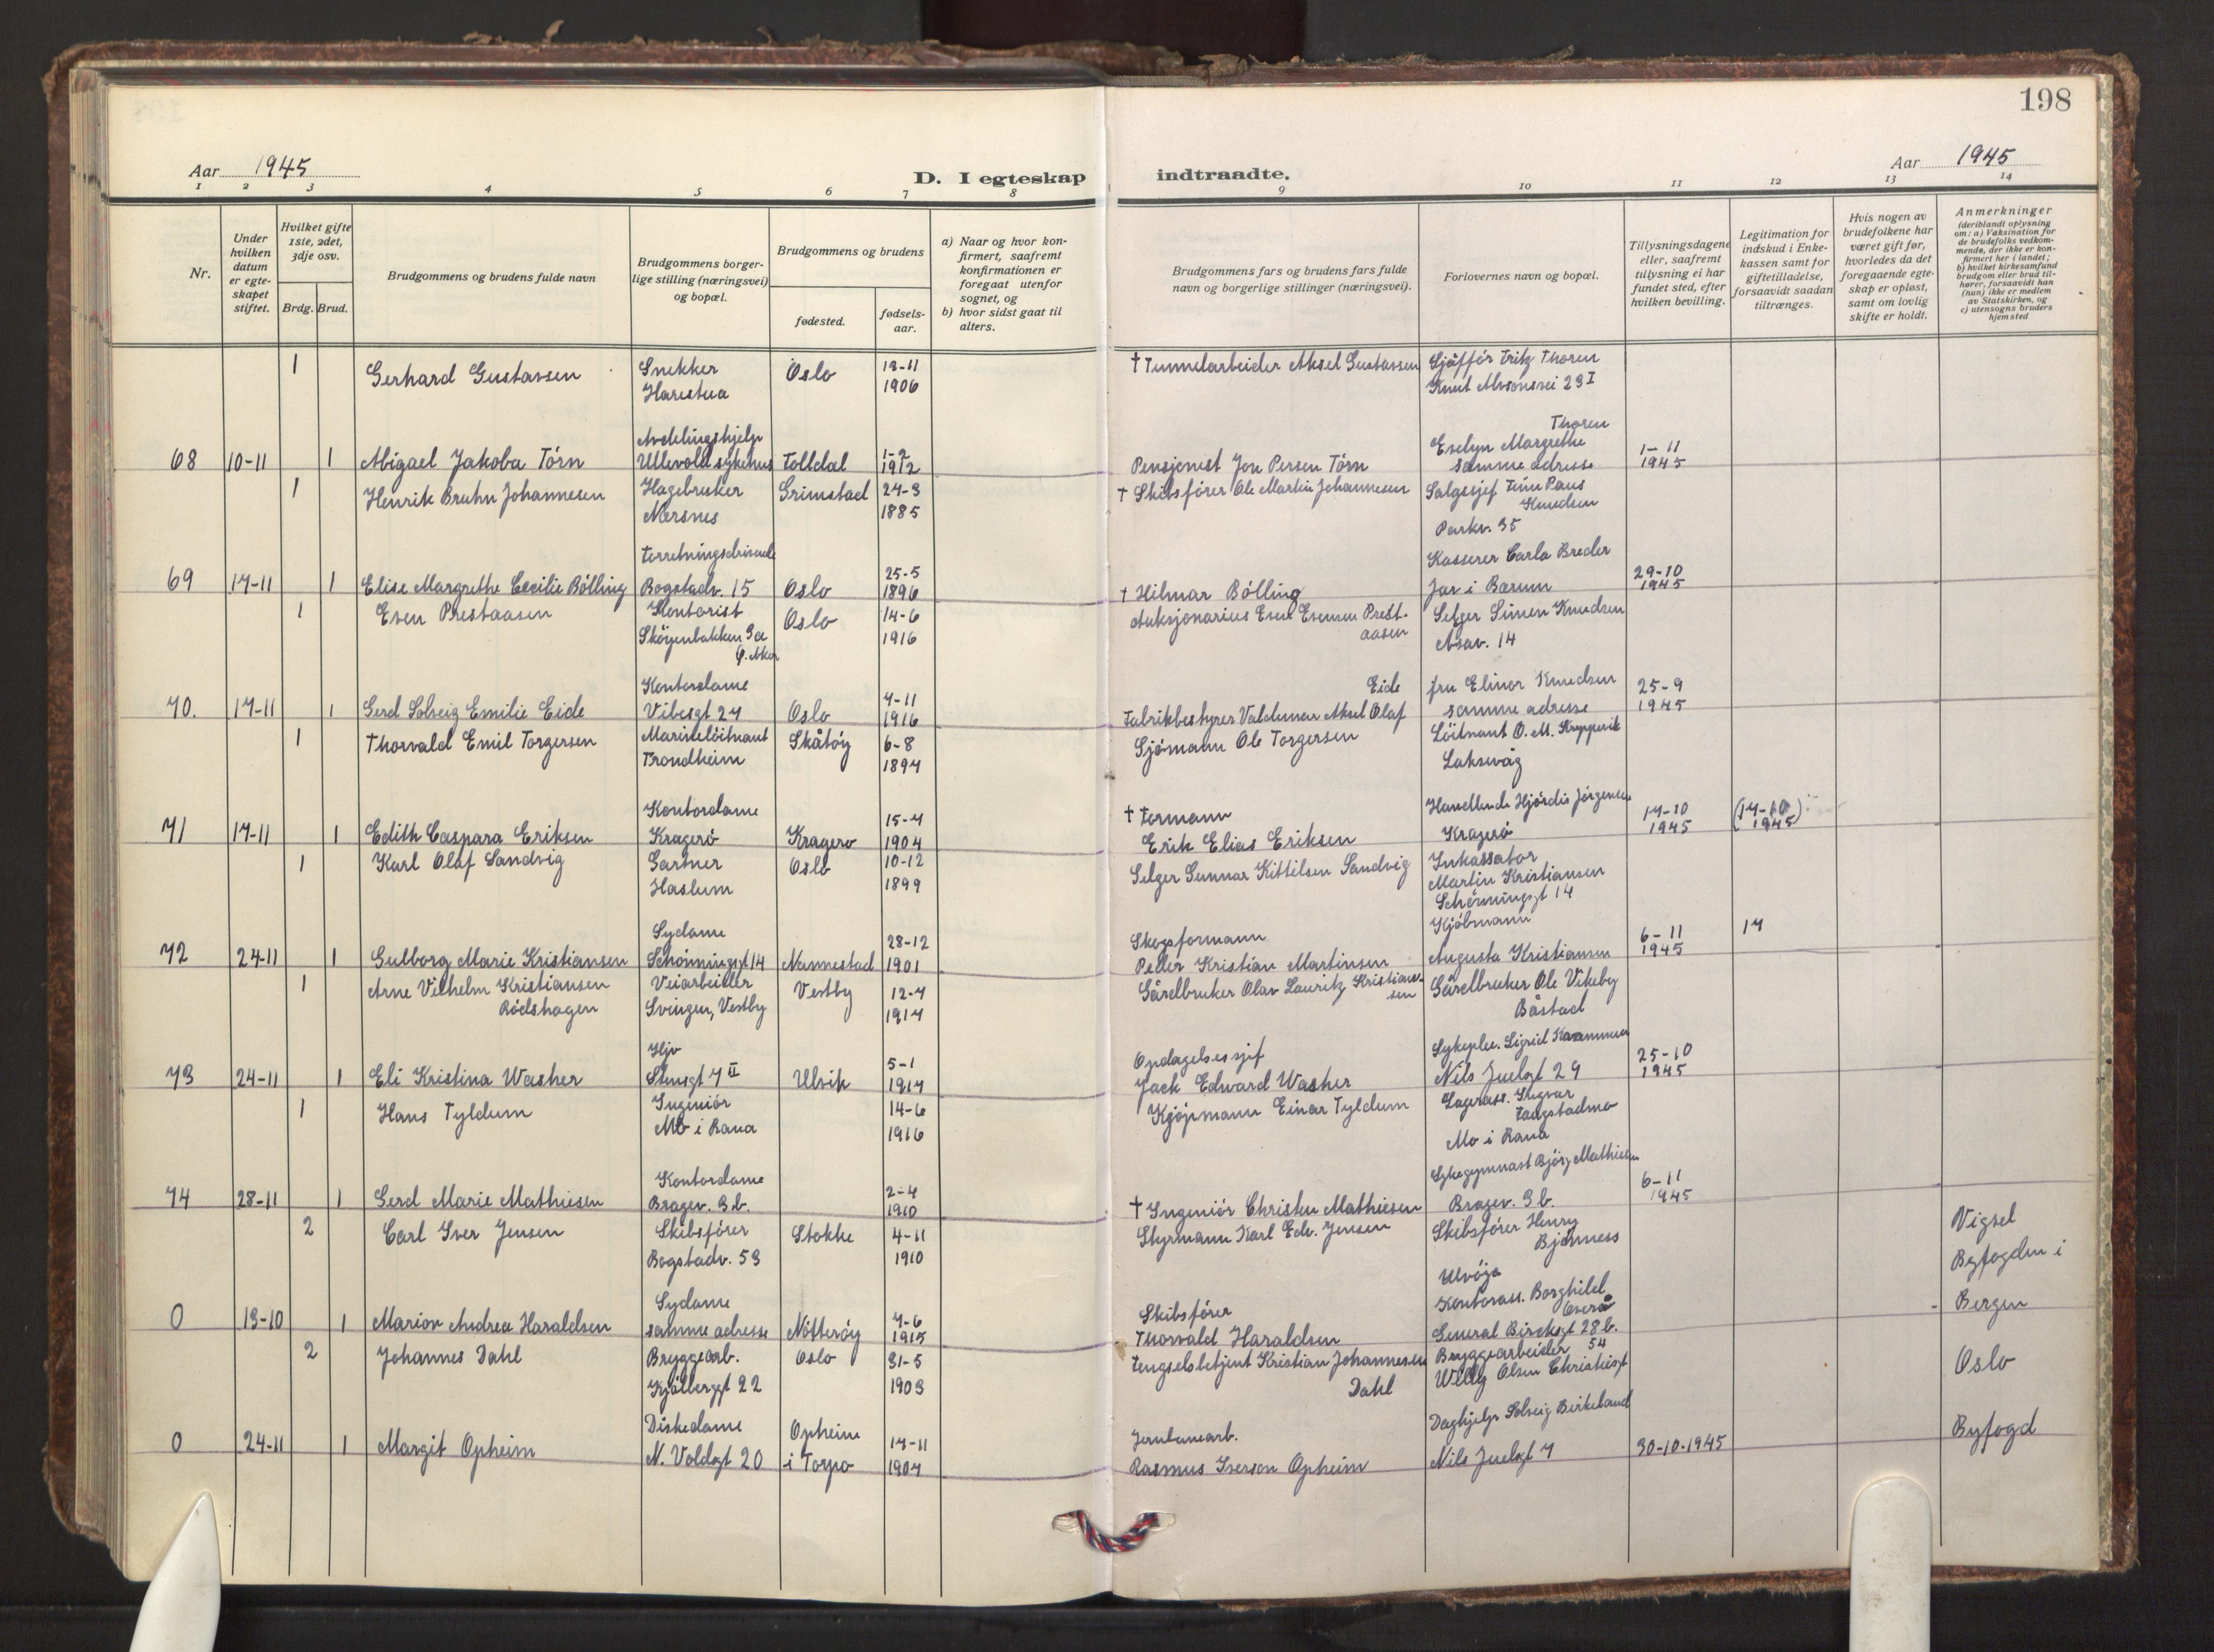 198
Aar 1945
D. I egteskap indtraadte.
Aar 1945
1 2 3 4 5 6 7 8 9 10 11 12 13 14
Nr.
Under hvilken datum er egteskapet stiftet.
Hvilket gifte 1ste, 2det, 3dje osv.
Brdg. Brud.
Brudgommens og brudens fulde navn
Brudgommens borgerlige stilling (næringsvei) og bopæl.
Brudgommens og brudens
fødested.
fødselsaar.
a) Naar og hvor konfirmert, saafremt konfirmationen er foregaat utenfor sognet, og
b) hvor sidst gaat til alters.
Brudgommens fars og brudens fars fulde navn og borgerlige stillinger (næringsvei).
Forlovernes navn og bopæl.
Tillysningsdagene eller, saafremt tillysning ei har fundet sted, efter hvilken bevilling.
Legitimation for indskud i Enkekassen samt for giftetilladelse, forsaavidt saadan tiltrænges.
Hvis nogen av brudefolkene har været gift før, hvorledes da det foregaaende egteskap er opløst, samt om lovlig skifte er holdt.
Anmerkninger
(deriblandt oplysning om: a) Vaksination for de brudefolks vedkommende, der ikke er konfirmert her i landet; b) hvilket kirkesamfund brudgom eller brud tilhører, forsaavidt han (hun) ikke er medlem av Statskirken, og c) utensogns bruders hjemsted
1 Gerhard Gustavsen Snekker Harestua Oslo 13-11 1906 † Tunnelarbeider Aksel Gustavsen Sjåffør Fritz Thoren Knut Alvsonsvei 23 I
68 10-11 1 Abigael Jakoba Törn Avdelingshjelp Ullevold sykehus Tolldal 1-2 1912 Pensjonist Jon Persen Törn Evelyn Margrethe Thoren samme adresse 1-11 1945
1 Henrik Bruhn Johannesen Hagebruker Nersnes Grimstad 24-3 1885 † Skibsfører Ole Martin Johannesen Salgssjef Paus Knudsen Parkv. 35
69 17-11 1 Elise Margrethe Cecilie Bölling Forretningsdrivende Bogstadv. 15 Oslo 25-5 1896 † Hilmar Bölling Kasserer Carla Breder Jar i Bærum 29-10 1945
1 Even Prestaasen Kontorist Skøyenbakken 3a Ö. Aker Oslo 14-6 1916 Auksjonarius Even Evensen Prestaasen Selger Simen Knudsen Asav. 14
70. 17-11 1 Gerd Solveig Emilie Eide Kontordame Vibesgt 27 Oslo 7-11 1916 Fabrikbestyrer Valdemar Aksel Olaf Eide fru Elinor Knudsen samme adresse 25-9 1945
1 Thorvald Emil Torgersen Marineløitnant Trondheim Skåtöy 6-8 1894 Sjömann Ole Torgersen Löitnant O. M. Laksevåg
71 17-11 1 Edith Caspara Eriksen Kontordame Kragerö Kragerö 15-7 1904 † Formann Erik Elias Eriksen Hjördis Jörgensen Kragerö 17-10 1945 (17-10 1945)
1 Karl Olaf Sandvig Gartner Haslum Oslo 10-12 1899 Selger Gunnar Kittilsen Sandvig Inkassator Martin Kristiansen Schönningsgt 14
72 24-11 1 Gulborg Marie Kristiansen Sydame Schönningsgt 14 Nannestad 28-12 1901 Skogsformann Peder Kristian Martinsen Kjöbmann Augusta Kristiansen 6-11 1945 17
1 Arne Vilhelm Kristiansen Rödshagen Veiarbeider Svingen, Vestby Vestby 12-7 1917 Gårdbruker Olav Lauritz Kristiansen Gårdbruker Ole Vikeby Båstad
73 24-11 1 Eli Kristina Washer Hjv Stensgt 7 II Ulvik 5-1 1917 Opdagelsessjef Jack Edward Washer Sykeple. Sigrid Nils Juelsgt 29 25-10 1945
1 Hans Tyldum Ingeniör Mo i Rana 14-6 1916 Kjöpmann Einar Tyldum Lagerass. Ingvar Mo i Rana
74 28-11 1 Gerd Marie Mathiesen Kontordame Bragev. 3b. 2-4 1910 † Ingeniör Christen Mathiesen Sykegymnast Björg Mathiesen Bragev. 3b. 6-11 1945
2 Carl Iver Jensen Skibsförer Bogstadv. 53 Stokke 4-11 1910 Styrmann Karl Edv. Jensen Skibsförer Henry Bjönness Ulvöya Vigsel Byfogden i Bergen
0 13-10 1 Marion Andrea Haraldsen Sydame samme adresse Nötteröy 7-6 1915 Skibsförer Thorvald Haraldsen Kontorass. Borghild General Birchsgt 28b.
2 Johannes Dahl Bryggearb. Kjölberggt 22 Oslo 31-5 1903 Fengselsbetjent Kristian Johannesen Dahl Bryggearbeider Willy Olsen Christiesgt 54 Oslo
0 24-11 1 Margit Opheim Diskedame N. Voldgt 20 Opheim i Torpo 17-11 1907 Jernbanearb. Rasmus Iverson Opheim Daghjelp Solveig Birkeland Nils Juelsgt 7 30-10-1945 Byfogd